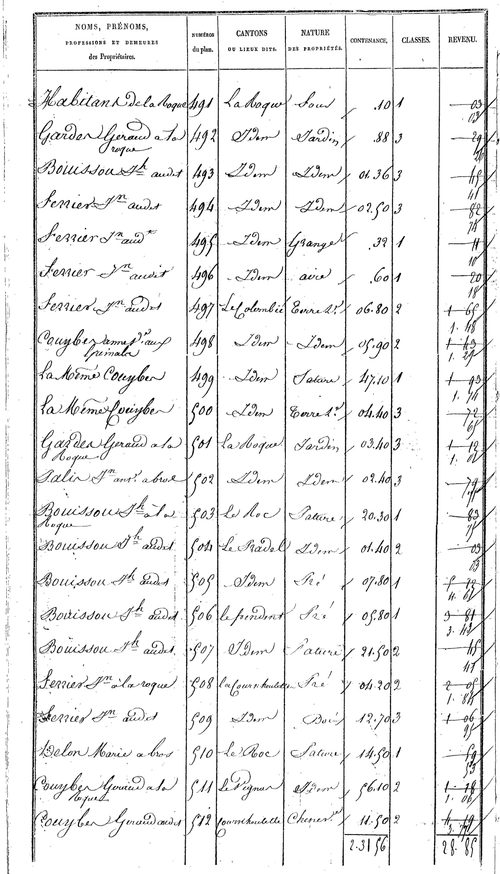 NOMS, PRÉNOMS, PROFESSIONS ET DEMEURES des Propriétaires. NUMÉROS du plan. CANTONS OU LIEUX DITS. NATURE DES PROPRIÉTÉS. CONTENANCE. CLASSES. REVENU.
Habitans de la Roque 491 La Roque Four .10 1 03
03
Gardes Geraud a la roque 492 Idem Jardin .88 3 29
Bouissou Jh audit 493 Idem Idem 01.36 3 45
41
Ferrier Jn audit 494 Idem Idem 02.50 3 82
Ferrier Jn audt 495 Idem Grange .32 1 11
10
Ferrier Jn audit 496 Idem aire .60 1 20
18
Ferrier Jn audit 497 Le Colombié Terre 06.80 2 1 65
1.48
Couyber 498 Idem Idem 05.90 2 1 43
1.29
La Même Couyber 499 Idem Pature 47.10 1 1 93
1.74
La Même Couyber 500 Idem Terre 04.40 3 72
65
Gardes Geraud a la Roque 501 La Roque Jardin 03.40 3 1 12
1.02
502 Idem Idem 02.40 3 79
Bouissou Jh a la Roque 503 Le Roc Pature 20.30 1 83
75
Bouissou Jh audit 504 Le Radel Idem 01.40 2 03
03
Bouissou Jh audit 505 Idem Pré 07.80 1
Bouissou Jh audit 506 Le pendent Pré 05.80 1 3 81
3.42
Bouissou Jh audit 507 Idem Pature 21.50 2 45
41
Ferrier Jn a la roque 508 Pré 04.20 2 2 05
1.84
Ferrier Jn audit 509 Idem Bois 12.70 3 1 06
95
Delon Marie a bros 510 Le Roc Pature 14.50 1 59
53
Couyber Geraud a la roque 511 Le Pignou Idem 56.10 2 1 18
1.06
Couyber Geraud audit 512 11.50 2
2.31 56 28.85